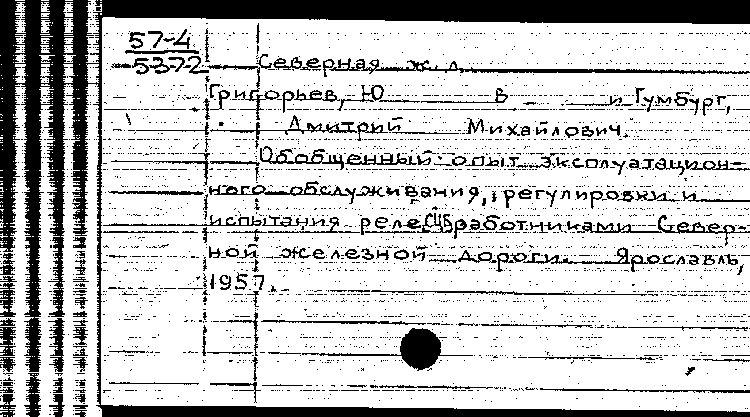 57-4
5372 Северная ж. д.
Григорьев, Ю В и Гумбург,
Дмитрий Михайлович.
Обобщенный опыт эксплуатацион-
ного обслуживания, регулировки и
испытания реле СЦБ работниками Север-
ной железной дороги. Ярославль,
1957.